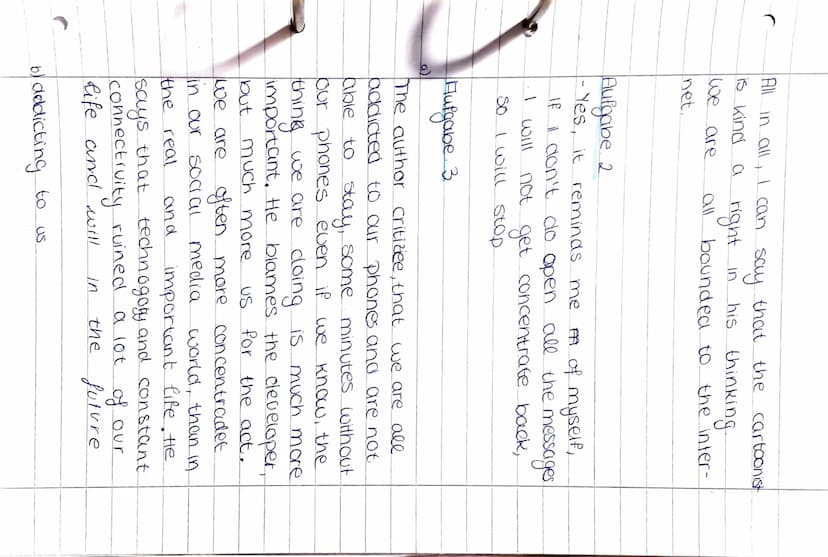 All in all, I can say that the cartoonist
is kind a right in his thinking.
We are all bounded to the inter-
net.
Aufgabe 2
- Yes, it reminds me of myself,
If I don't do open all the messages
I will not get concentrate back,
so I will stop
Aufgabe 3
a)
The author critizee, that we are all
addicted to our phones and are not
able to stay, some minutes without
our phones even if we know, the
thing we are doing is much more
important. He blames the developer,
but much more us for the act.
We are often more concentradet
in our social media world, than in
the real and important life. He
says that technogogy and constant
connectivity ruined a lot of our
life and will in the future
b) addicting to us